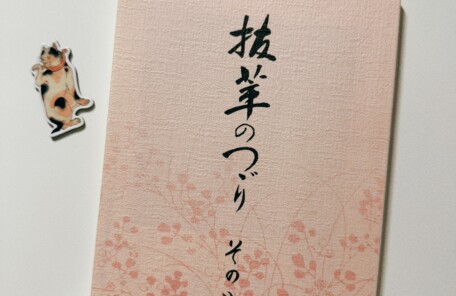 抜萃のつゞり その